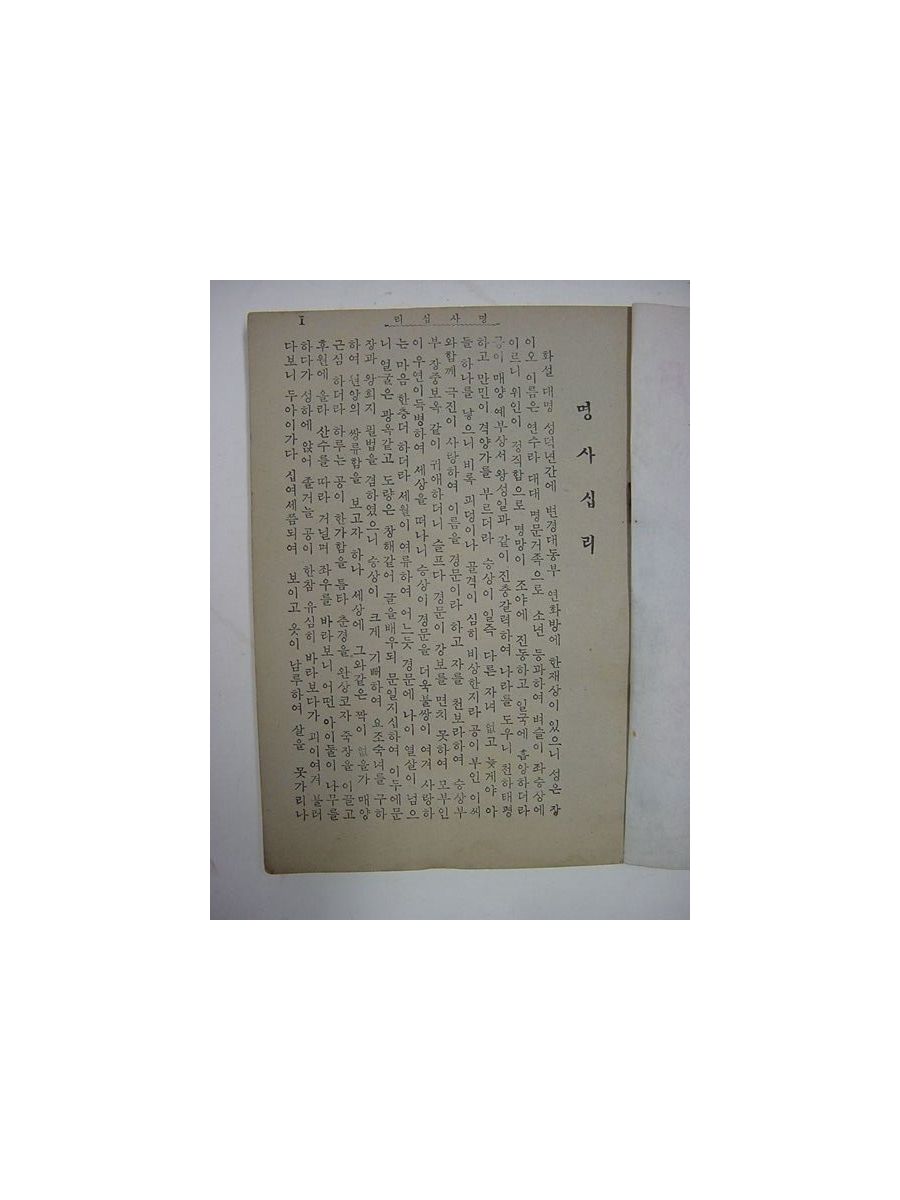 명사십리
1
명사십리
화설 대명 성덕년간에 변경대동부 연화방에 한재상이 있으니 성은 장
이오 이름은 연수라 대대 명문거족으로 소년 등과하여 벼슬이 좌승상에
이르니 위인이 정직함으로 명망이 조야에 진동하고 일국에 흠앙하더라
공이 매양 예부상서 왕성일과 같이 진충갈력하여 나라를 도우니 천하태평
하고 만민이 격양가를 부르더라 승상이 일즉 다른 자녀 없고 늦게야 아
들 하나를 낳으니 비록 피덩이나 골격이 심히 비상한지라 공이 부인 이씨
와함께 극진이 사랑하여 이름을 경문이라 하고 자를 천보라하여 승상부
부 장중보옥 같이 귀애하더니 슬프다 경문이 강보를 면치 못하여 모부인
이 우연이득병하여 세상을 떠나니 승상이 경문을 더욱불쌍이 여겨 사랑하
는 마음 한층더 하더라 세월이 여류하여 어느듯 경문에 나이 열살이 넘으
니 얼굴은 광옥같고 도량은 창해같어 글을배우되 문일지십하여 이두에문
장과 왕희지 필법을 겸하였으니 승상이 크게 기뻐하여 요조숙녀를 구하
하여 원앙의 쌍류합을 보고자 하나 세상에 그와같은 짝이 없을가 매양
근심 하더라 하루는 공이 한가함을 틈타 춘경을 완상코자 죽장을 이끌고
후원에 올라 산수를 따라 거닐며 좌우를 바라보니 어떤 아이둘이 나무를
하다가 성하에 앉어 졸거늘 공이 한참 유심히 바라보다가 괴이여겨 불러
다보니 두아이가다 십여세쯤되여 보이고 옷이 남루하여 살을 못가리나